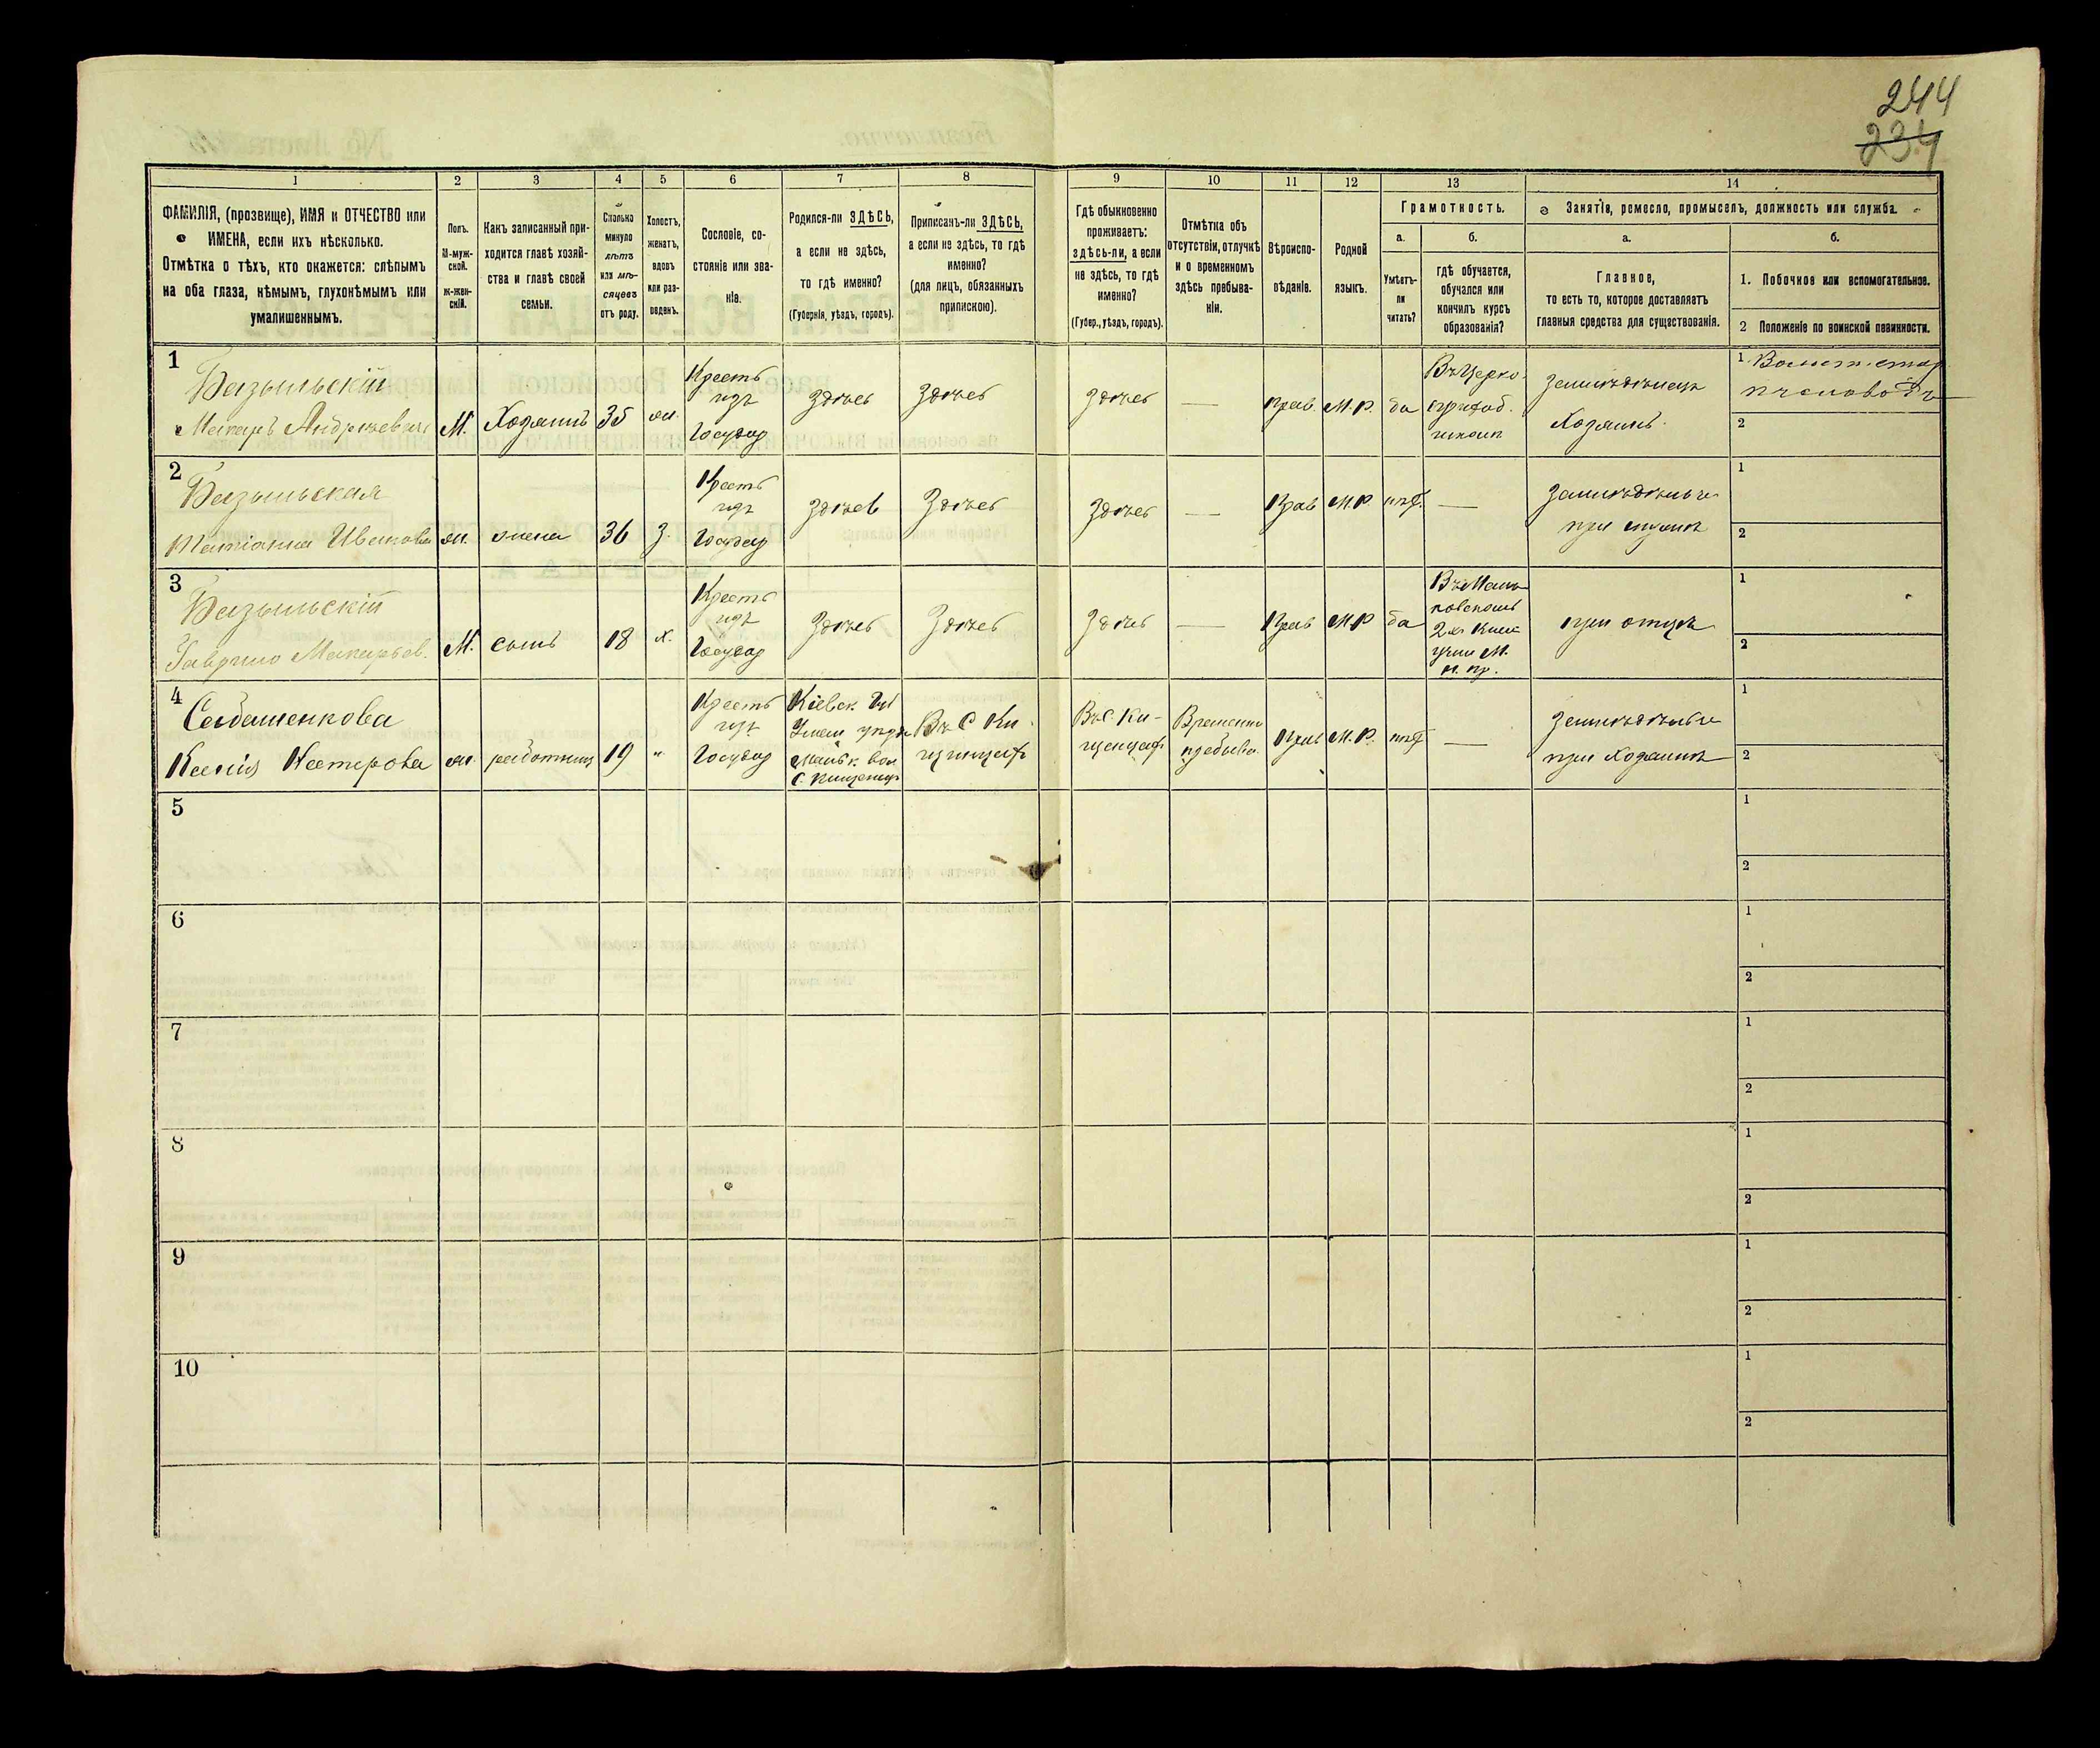 244
234
1 2 3 4 5 6 7 8 9 10 11 12 13 14
ФАМИЛІЯ, (прозвище), ИМЯ и ОТЧЕСТВО или
ИМЕНА, если ихъ нѣсколько.
Отмѣтка о тѣхъ, кто окажется: слѣпымъ
на оба глаза, нѣмымъ, глухонѣмымъ или
умалишеннымъ.
Полъ.
М-муж-
ской.
ж-жен-
скій.
Какъ записанный при-
ходится главѣ хозяй-
ства и главѣ своей
семьи.
Сколько
минуло
лѣтъ
или мѣ-
сяцевъ
отъ роду.
Холостъ,
женатъ,
вдовъ
или раз-
веденъ.
Сословіе, со-
стояніе или зва-
ніе.
Родился-ли ЗДѢСЬ,
а если не здѣсь,
то гдѣ именно?
(Губернія, уѣздъ, городъ).
Приписанъ-ли ЗДѢСЬ,
а если не здѣсь, то гдѣ
именно?
(для лицъ, обязанныхъ
припискою).
Гдѣ обыкновенно
проживаетъ:
здѣсь-ли, а если
не здѣсь, то гдѣ
именно?
(Губер., уѣздъ, городъ).
Отмѣтка объ
отсутствіи, отлучкѣ
и о временномъ
здѣсь пребыва-
ніи.
Вѣроиспо-
вѣданіе.
Родной
языкъ.
Грамотность.
а.
Умѣетъ-
ли
читать?
б.
гдѣ обучается,
обучался или
кончилъ курсъ
образованія?
Занятіе, ремесло, промыселъ, должность или служба.
а.
Главное,
то есть то, которое доставляетъ
главныя средства для существованія.
б.
1. Побочное или вспомогательное.
2 Положеніе по воинской повинности.
1
Базыльскій
Макаръ Андреевичъ
М.
Хозяинъ
35
жи.
Крестъ
изъ
Государ
Здѣсь
Здѣсь
Здѣсь
—
Прав.
М. Р.
да
Въ Церко.
приход.
школѣ
Земледѣлецъ
Хозяинъ.
1 Волост. стар
пчеловодъ
2
2
Базыльская
Татіана Иванова
жи.
жена
36
З.
Крестъ
изъ
Государ
Здѣсь
Здѣсь
Здѣсь
—
Прав
М. Р.
нѣт.
—
Земледѣліе
при мужѣ
1
2
3
Базыльскій
Гаврило Макарьев.
М.
сынъ
18
х.
Крестъ
изъ
Государ
Здѣсь
Здѣсь
Здѣсь
—
Прав
М Р
да
2хъ Клас
учил М.
н. пр.
при отцѣ
1
2
4
Ксенія Нестерова
жи.
работница
19
"
Крестъ
изъ
Государ
Кіевск Губ
Уман уѣзд
Маньк вол
Въ С Ки-
Въ С. Ки-
Временно
пребыва.
Прав
М. Р.
нѣт
—
Земледѣліе
при Хозяинѣ
1
2
5
1
2
6
1
2
7
1
2
8
1
2
9
1
2
10
1
2